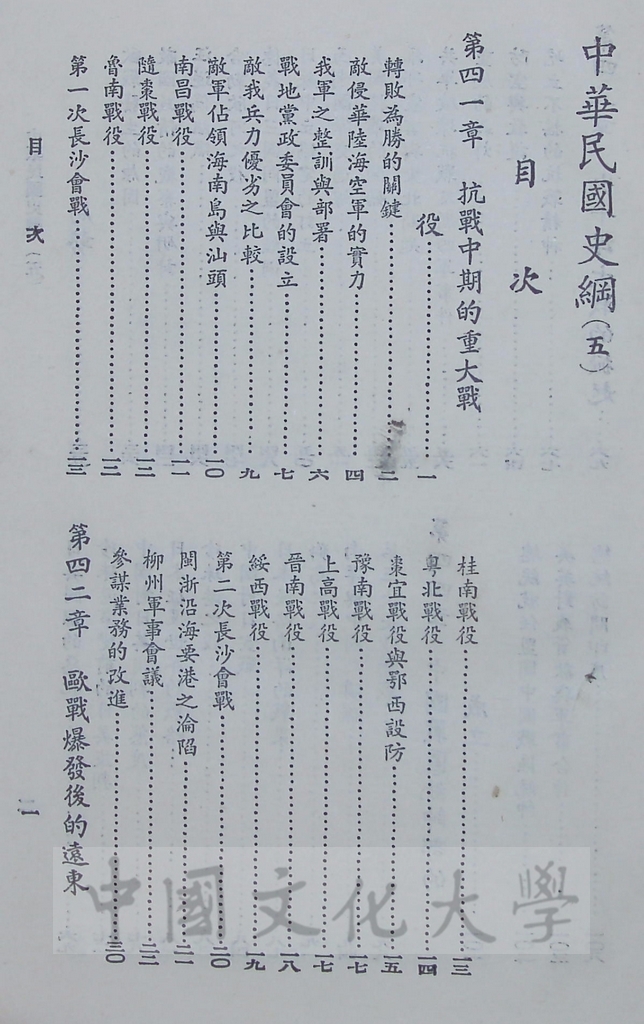 中華民國史綱(五)
目次
第四一章 抗戰中期的重大戰
役……一
轉敗為勝的關鍵……二
敵侵華陸海空軍的實力……四
我軍之整訓與部署……六
戰地黨政委員會的設立……七
敵我兵力優劣之比較……九
敵軍佔領海南島與汕頭……一〇
南昌戰役……一一
隨棗戰役……一二
魯南戰役……一二
第一次長沙會戰……一三
桂南戰役……一三
粵北戰役……一四
棗宜戰役與鄂西設防……一五
豫南戰役……一七
上高戰役……一七
晉南戰役……一八
綏西戰役……一九
第二次長沙會戰……二〇
閩浙沿海要港之淪陷……二一
柳州軍事會議……二二
參謀業務的改進……三〇
第四二章 歐戰爆發後的遠東
目次(五)
中國文化大學